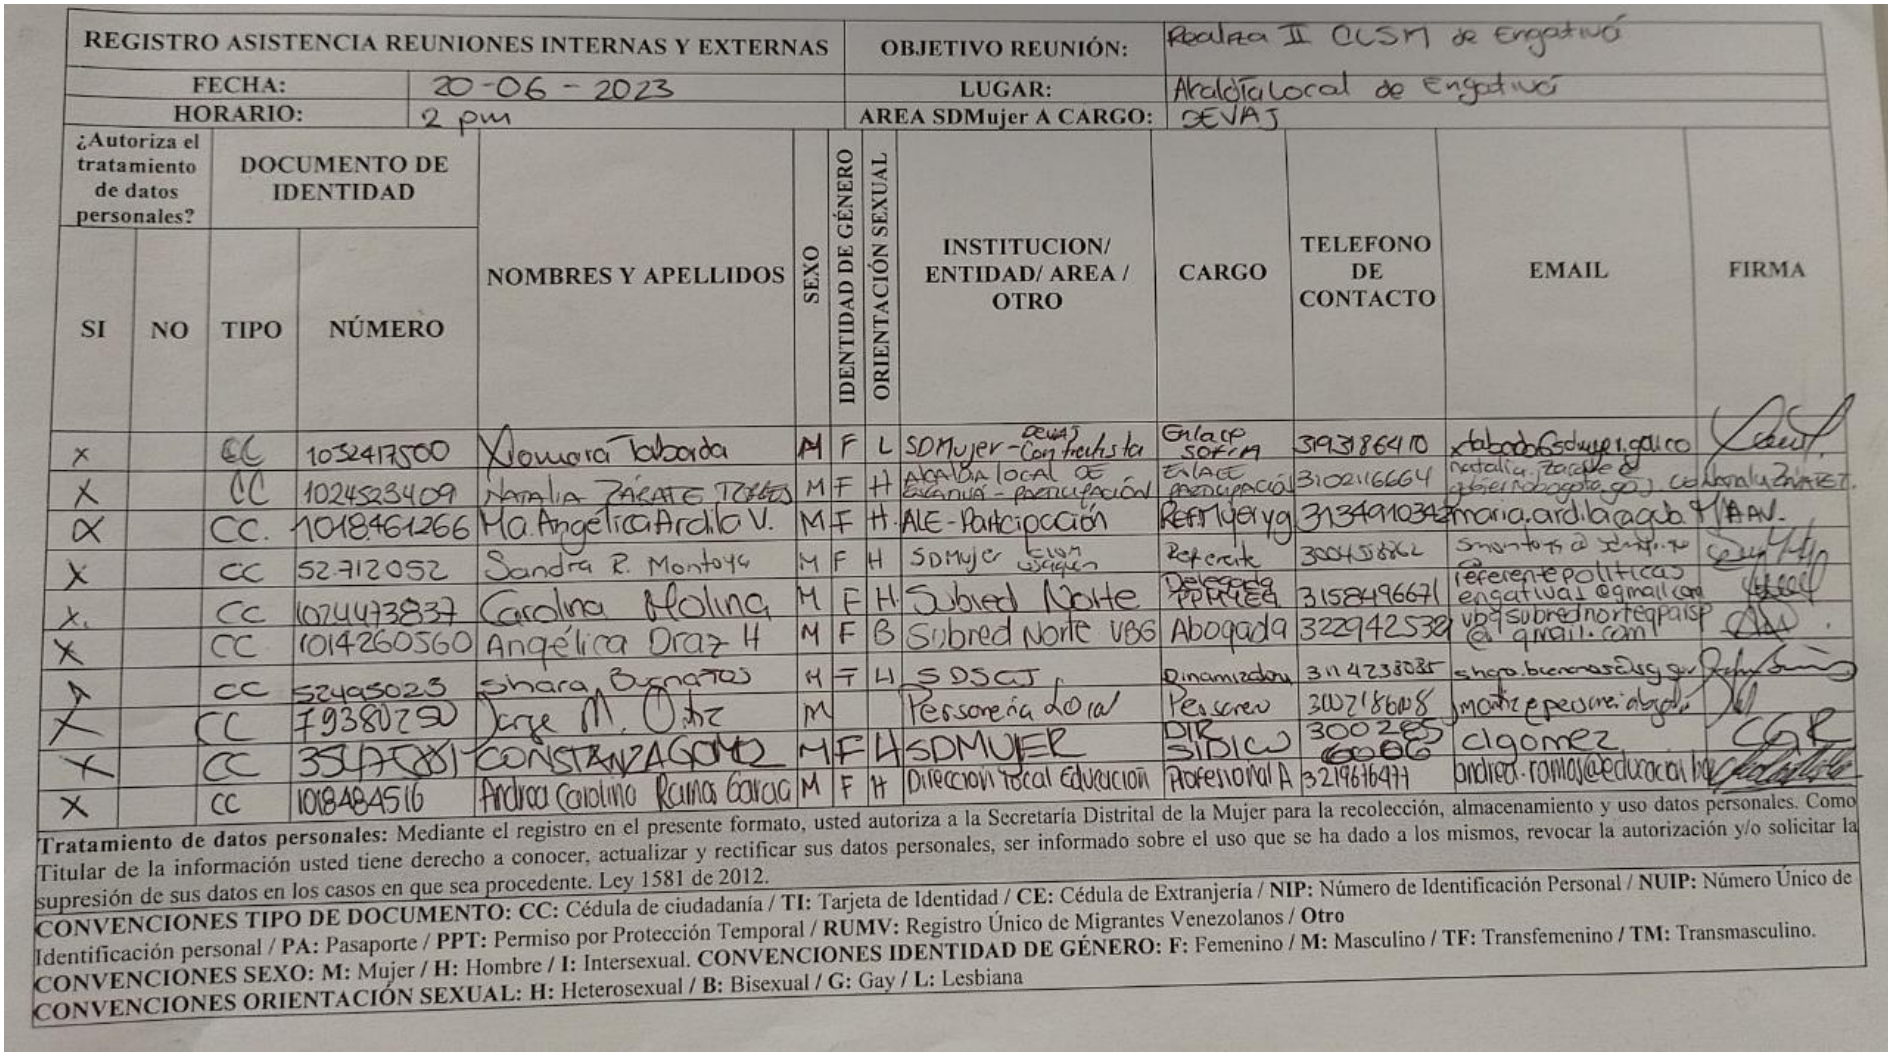 REGISTRO ASISTENCIA REUNIONES INTERNAS Y EXTERNAS OBJETIVO REUNIÓN: Realiza II CLSM de Engativá
FECHA: 20-06-2023 LUGAR: Alcaldía Local de Engativá
HORARIO: 2 pm AREA SDMujer A CARGO: DEVAJ
¿Autoriza el tratamiento de datos personales?
DOCUMENTO DE IDENTIDAD
SI NO TIPO NÚMERO NOMBRES Y APELLIDOS SEXO IDENTIDAD DE GÉNERO ORIENTACIÓN SEXUAL INSTITUCION/ ENTIDAD/ AREA / OTRO CARGO TELEFONO DE CONTACTO EMAIL FIRMA
X CC 1032417500 Xiomara Taborda M F L SDMujer - DEVAJ Contratista Enlace SOFIA 3193186410
X CC 1024523409 NATALIA ZÁRATE TORRES M F H ALCALDIA LOCAL DE ENGATIVÁ - PARTICIPACIÓN ENLACE PARTICIPACIÓN 3102116664
X CC. 1018461266 Ma. Angélica Ardila V. M F H. ALE - Participación Ref Mujer y g 3134910342 MAAV.
X CC 52.712052 Sandra R. Montoya M F H SDMujer Referente
X. CC 1024473837 Carolina Molina M F H. Subred Norte Delegada 3158496671 referentepoliticas engativa1@gmail.com
X CC 1014260560 Angélica Diaz H M F B Subred Norte VBG Abogada 322942532 vbgsubrednorteqpaisp @gmail.com
CC 52495023 Shara Buenaños SDSCJ Dinamizadora 3114238035
X CC 79380250 Jorge M. Ortiz M Personería Local Personero
X CC CONSTANZA GOMEZ M F H SDMUJER DIR SIDICU 300285 6006 clgomez CGR
X CC 1018484516 Andrea Carolina Ramos Garcia M F H Direccion local Educación Profesional A 3219676477
Tratamiento de datos personales: Mediante el registro en el presente formato, usted autoriza a la Secretaría Distrital de la Mujer para la recolección, almacenamiento y uso datos personales. Como
Titular de la información usted tiene derecho a conocer, actualizar y rectificar sus datos personales, ser informado sobre el uso que se ha dado a los mismos, revocar la autorización y/o solicitar la
supresión de sus datos en los casos en que sea procedente. Ley 1581 de 2012.
CONVENCIONES TIPO DE DOCUMENTO: CC: Cédula de ciudadanía / TI: Tarjeta de Identidad / CE: Cédula de Extranjería / NIP: Número de Identificación Personal / NUIP: Número Único de
Identificación personal / PA: Pasaporte / PPT: Permiso por Protección Temporal / RUMV: Registro Único de Migrantes Venezolanos / Otro
CONVENCIONES SEXO: M: Mujer / H: Hombre / I: Intersexual. CONVENCIONES IDENTIDAD DE GÉNERO: F: Femenino / M: Masculino / TF: Transfemenino / TM: Transmasculino.
CONVENCIONES ORIENTACIÓN SEXUAL: H: Heterosexual / B: Bisexual / G: Gay / L: Lesbiana